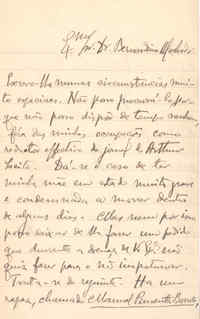 Exmo
Sr. Dr. Bernardino
Escrevo-lhe numas circunstancias mui-
to especiaes. Não posso procural-o por-
que não posso dispôr de tempo nenhum,
dia das minhas occupações como
redactor effectivo do jornal do Arthur
Leite. Dá-se o caso de ter
minha mãe em estado muito grave
e condemnada a morrer dentro
de alguns dias. Mas nem por isso
posso deixar de lhe fazer um pedido
que durante a doença de V. Ex.ª não
quiz fazer para o não importunar.
Trata-se do seguinte. Ha um
rapaz, chamado Manuel